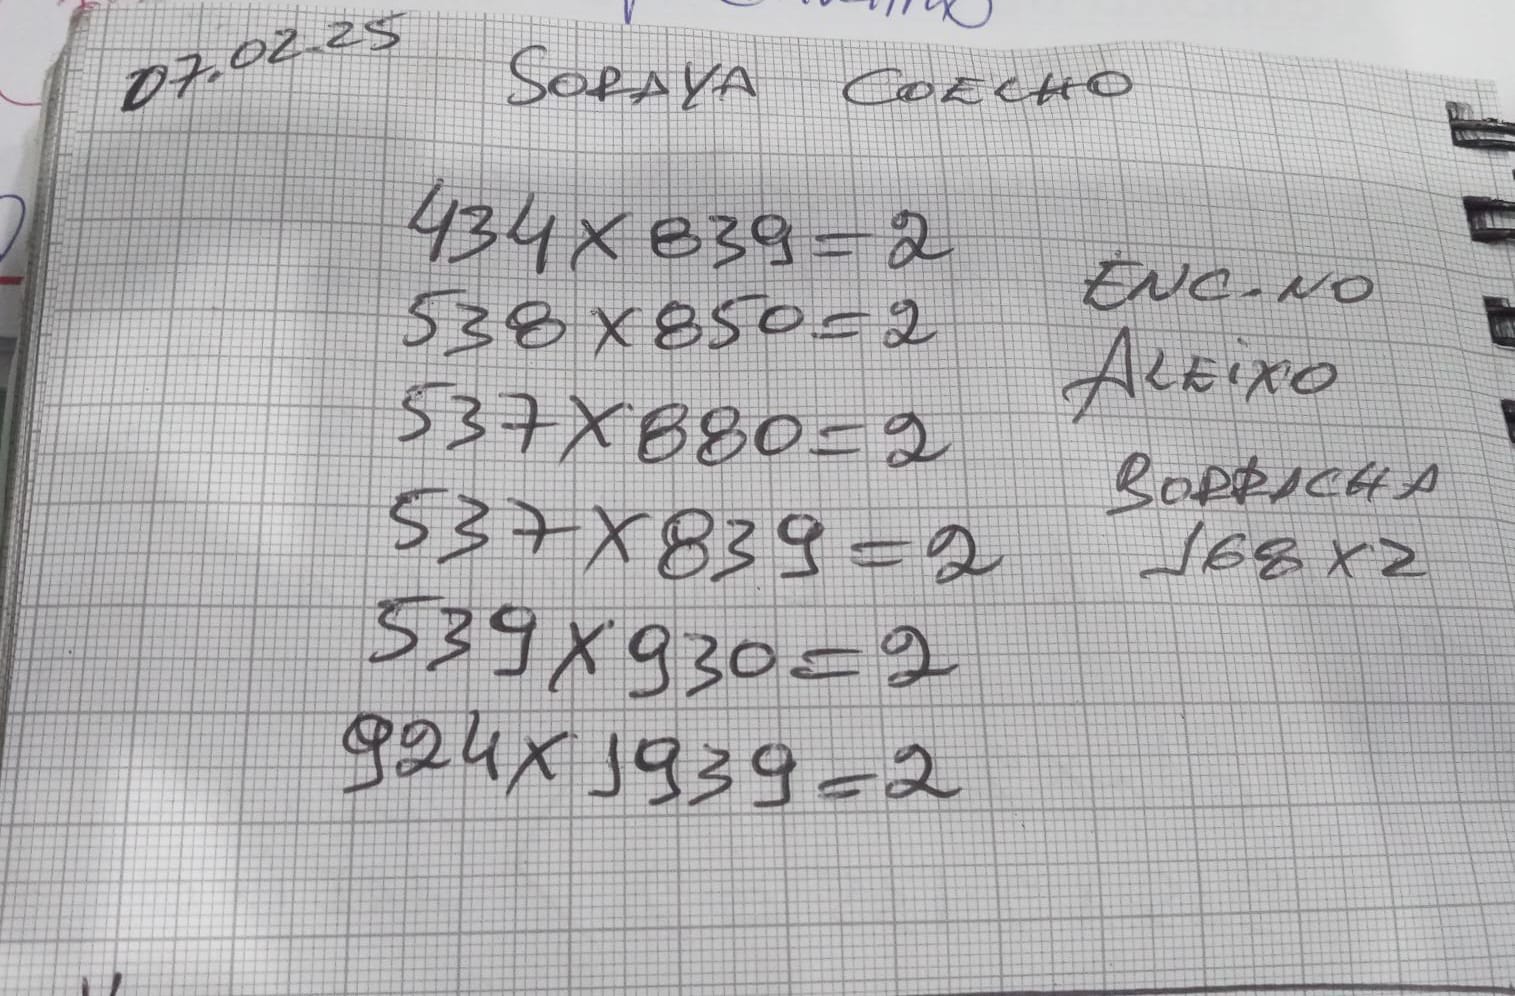 07.02.25 SORAYA COELHO
434X839=2
538X850=2
537X880=2
537X839=2
539X930=2
924X1939=2
ENC-NO
ALEIXO
BORRACHA
168X2